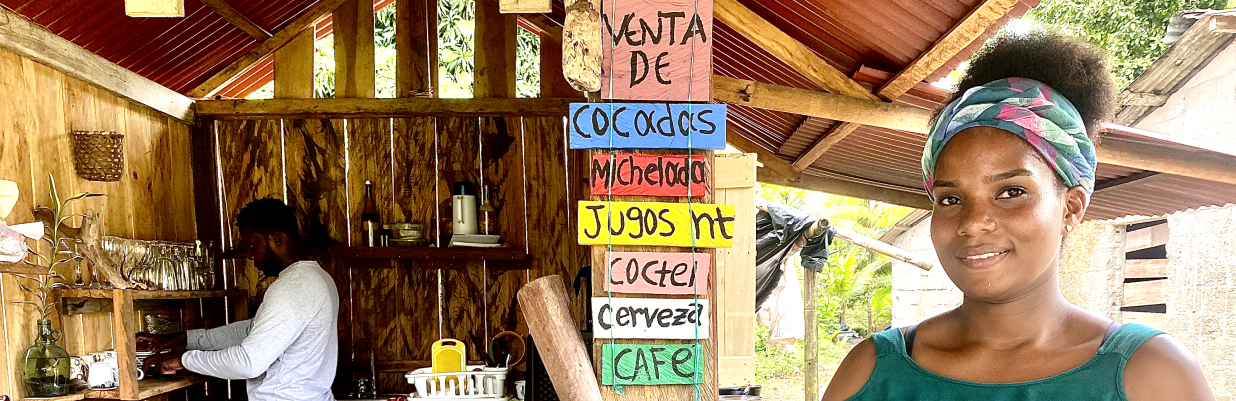 VENTA
DE
cocadas
Michelada
JUGOS nt
COCTEl
cerveza
CAFE